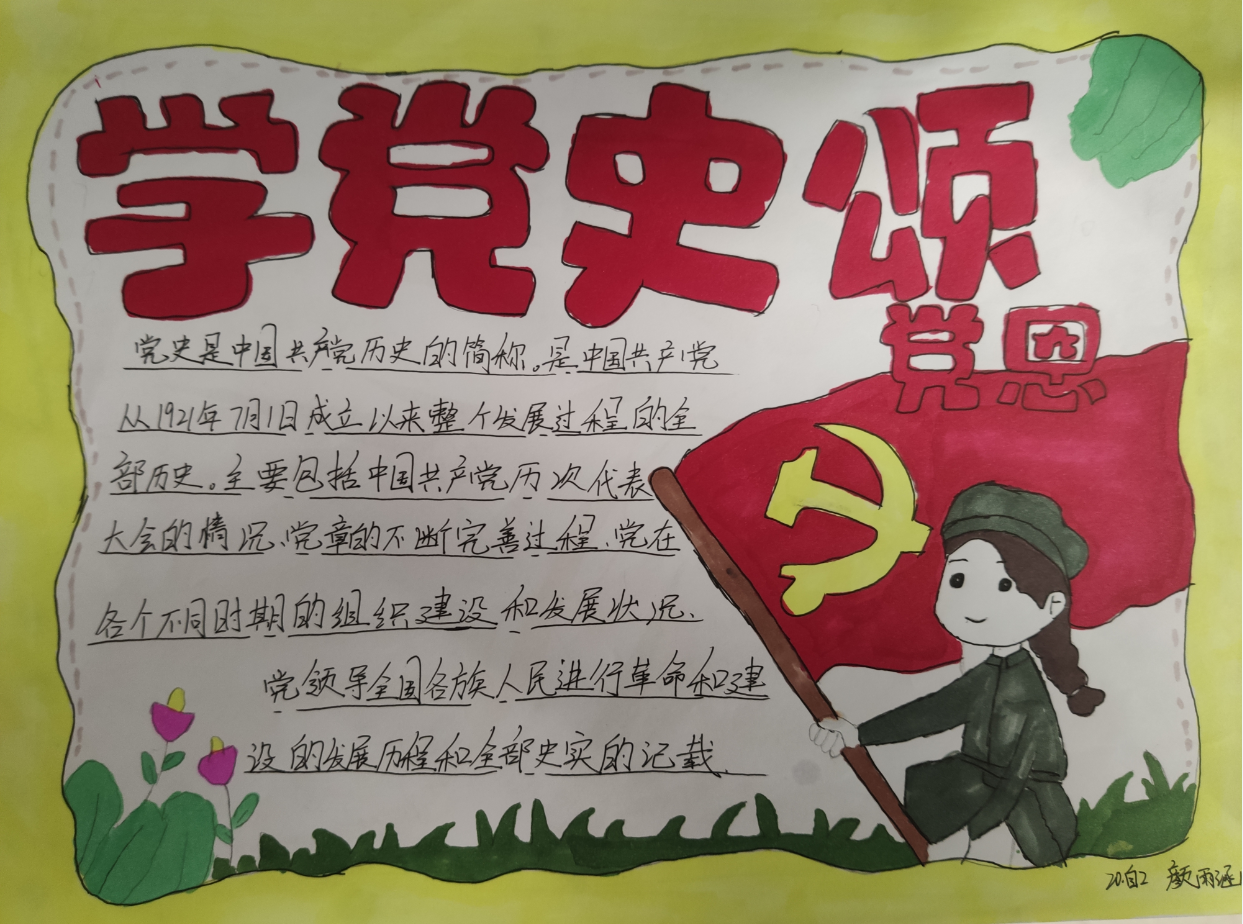 学党史颂
党恩
党史是中国共产党历史的简称。是中国共产党
从1921年7月1日成立以来整个发展过程的全
部历史。主要包括中国共产党历次代表
大会的情况、党章的不断完善过程、党在
各个不同时期的组织建设和发展状况、
党领导全国各族人民进行革命和建
设的发展历程和全部史实的记载、
20.自2 颜雨涵